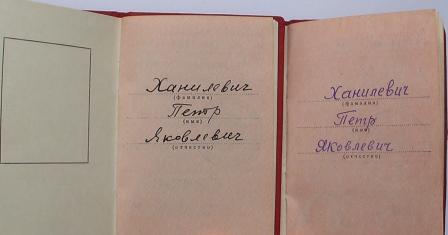 Ханилевич
(фамилия)
Петр
(имя)
Яковлевич
(отчество)
Ханилевич
(фамилия)
Петр
(имя)
Яковлевич
(отчество)